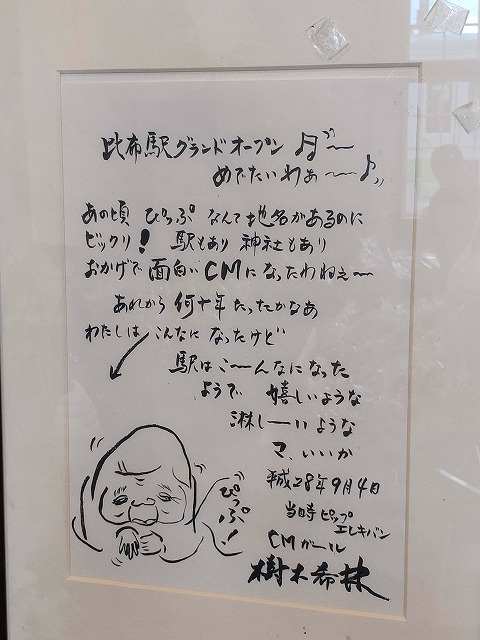 比布駅グランドオープン
めでたいわぁ〜〜
あの頃 ぴっぷ なんて地名があるのに
ビックリ! 駅もあり 神社もあり
おかげで 面白いCMになったわねぇ〜
あれから 何十年たったかなあ
わたしは こんなになったけど
駅はこ〜〜んなになった
ようで 嬉しいような
淋しーいような
マ、いいか
平成28年9月4日
当時 ピップ
エレキバン
CMガール
樹木希林
ぴっぷ!